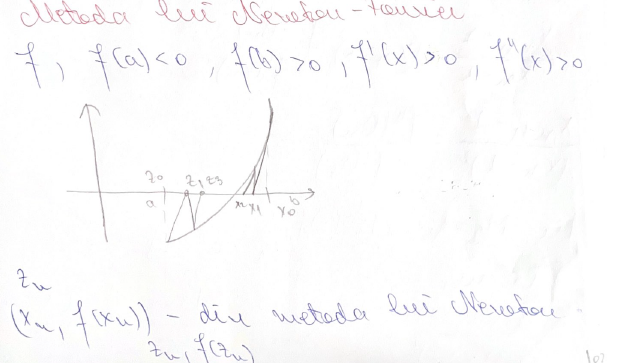 Metoda lui Newton-Fourier
f, f(a)<0, f(b)>0, f'(x)>0, f''(x)>0
z0 z1 z3
a x2 x1 x0 b
zn
(xn, f(xn)) - din metoda lui Newton
zn, f(zn)